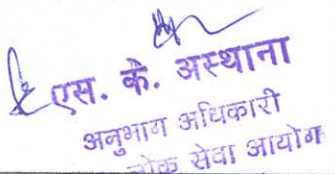 एस. के. अस्थाना
अनुभाग अधिकारी
लोक सेवा आयोग